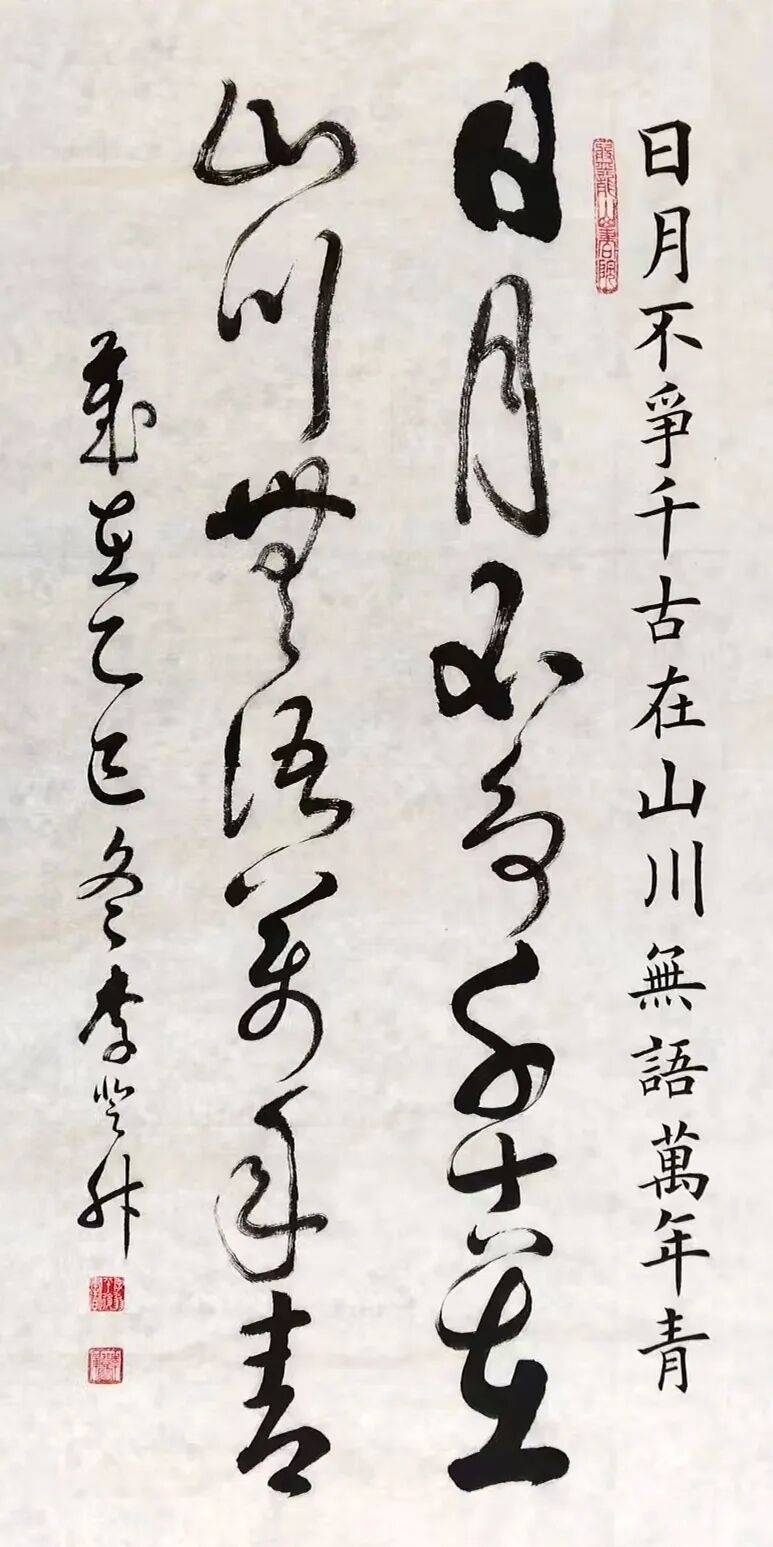 日月不爭千古在山川無語萬年青
日月不爭千古在
山川無語萬年青
歲在乙巳冬李登升